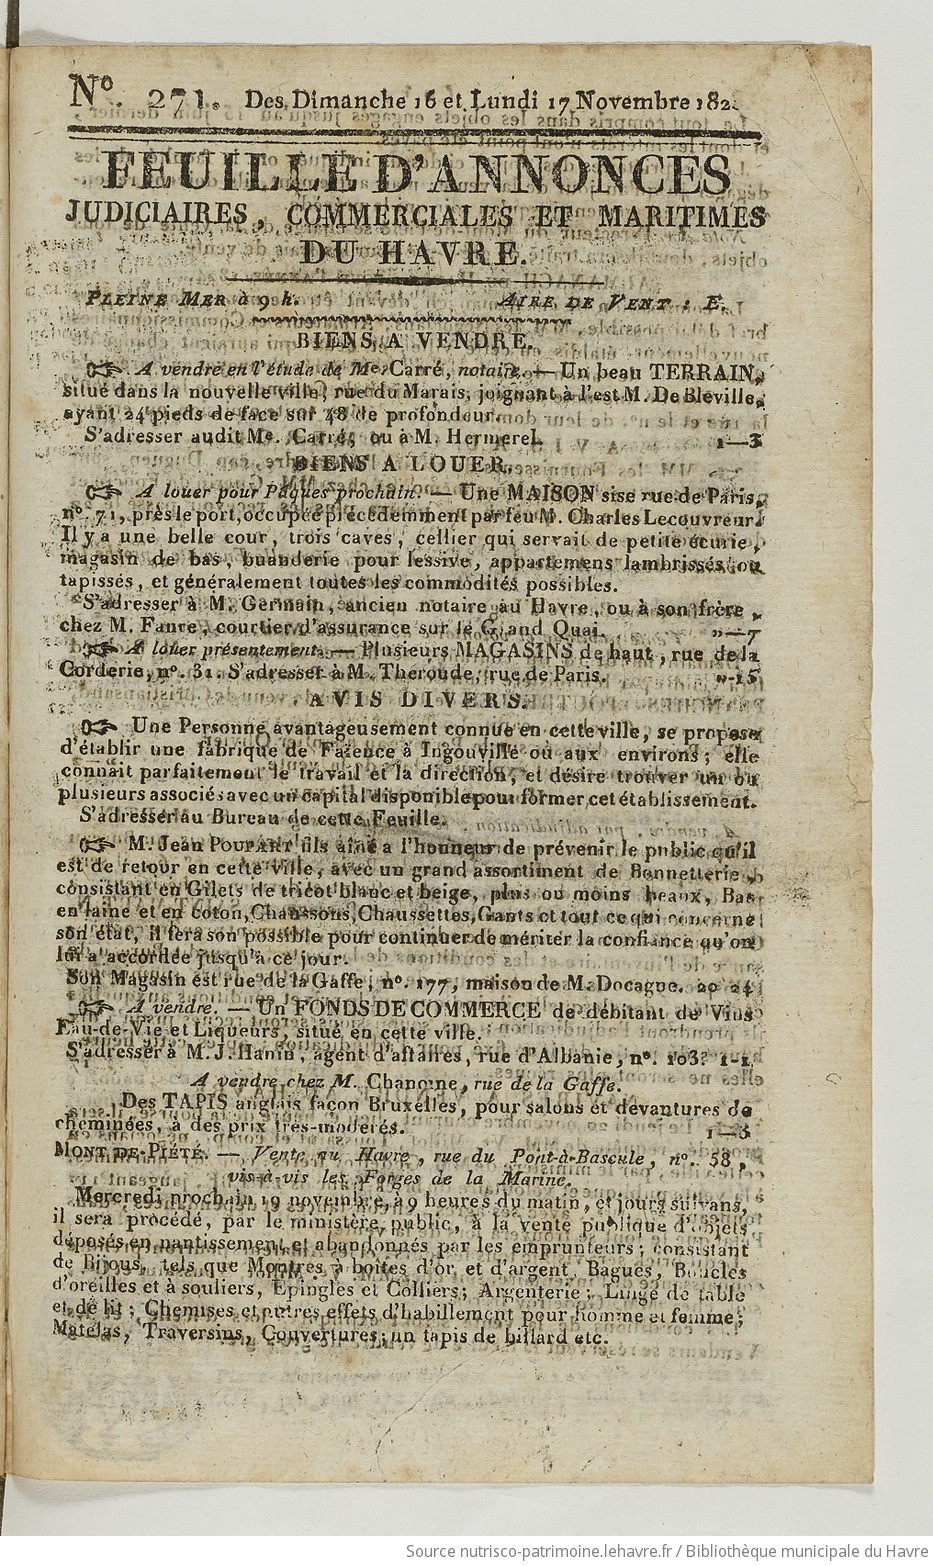 Nº. 271. Des Dimanche 16 et Lundi 17 Novembre 182
FEUILLE D'ANNONCES
JUDICIAIRES, COMMERCIALES ET MARITIMES
DU HAVRE.
PLEINE MER à 9 h. AIRE DE VENT : E.
BIENS A VENDRE.
☞ A vendre en l'étude de Me. Carré, notaire. — Un beau TERRAIN,
situé dans la nouvelle ville, rue du Marais, joignant à l'est M. De Bléville,
ayant 24 pieds de face sur 48 de profondeur.
S'adresser audit Me. Carré, ou à M. Hermerel. 1—3
BIENS A LOUER.
☞ A louer pour Pâques prochain. — Une MAISON sise rue de Paris,
nº. 71, près le port, occupée précédemment par feu M. Charles Lecouvreur.
Il y a une belle cour, trois caves, cellier qui servait de petite écurie,
magasin de bas, buanderie pour lessive, appartemens lambrissés ou
tapissés, et généralement toutes les commodités possibles.
S'adresser à M. Germain, ancien notaire au Havre, ou à son frère,
chez M. Faure, courtier d'assurance sur le Grand Quai. »—7
☞ A louer présentement. — Plusieurs MAGASINS de haut, rue de la
Corderie, nº. 31. S'adresser à M. Theroude, rue de Paris. »-15
AVIS DIVERS.
☞ Une Personne avantageusement connue en cette ville, se propose
d'établir une fabrique de Faïence à Ingouville ou aux environs; elle
connait parfaitement le travail et la direction, et désire trouver un ou
plusieurs associés avec un capital disponible pour former cet établissement.
S'adresser au Bureau de cette Feuille.
☞ M. Jean POUPART fils aîné a l'honneur de prévenir le public qu'il
est de retour en cette ville, avec un grand assortiment de Bonnetterie,
consistant en Gilets de tricot blanc et beige, plus ou moins beaux, Bas
en laine et en coton, Chaussons, Chaussettes, Gants et tout ce qui concerne
son état, il fera son possible pour continuer de mériter la confiance qu'on
lui a accordée jusqu'à ce jour.
Son Magasin est rue de la Gaffe, nº. 177, maison de M. Docagne. 20 24
☞ A vendre. — Un FONDS DE COMMERCE de débitant de Vins
Eau-de-Vie et Liqueurs, situé en cette ville.
S'adresser à M. J. Hanin, agent d'affaires, rue d'Albanie, nº. 103. 1-1
A vendre chez M. Chanoine, rue de la Gaffe.
Des TAPIS anglais façon Bruxelles, pour salons et devantures de
cheminées, à des prix très-modérés. 1—3
MONT-DE-PIÉTÉ. — Vente au Havre, rue du Pont-à-Bascule, nº. 58,
vis-à-vis les Forges de la Marine.
Mercredi prochain 19 novembre, à 9 heures du matin, et jours suivans,
il sera procédé, par le ministère public, à la vente publique d'objets
déposés en nantissement et abandonnés par les emprunteurs; consistant
de Bijous, tels que Montres à boites d'or, et d'argent, Bagues, Boucles
d'oreilles et à souliers, Epingles et Colliers; Argenterie; Linge de table
et de lit; Chemises et autres effets d'habillement pour homme et femme;
Matelas, Traversins, Couvertures, un tapis de billard etc.
Source nutrisco-patrimoine.lehavre.fr / Bibliothèque municipale du Havre